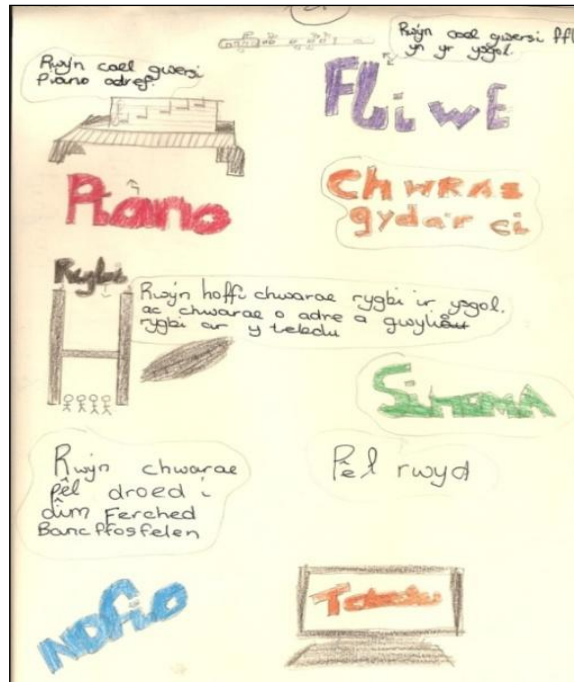 Rwy'n cael gwersi
Piano adref.
Rwy'n cael gwersi ffl
yn yr ysgol.
FLiwE
Piano
ChwRAE
gyda'r ci
Rygbi
Rwy'n hoffi chwarae rygbi ir ysgol.
ac chwarae o adre a gwylio
rygbi ar y teledu
SiNEMA
Rwy'n chwarae
Pêl droed i
dîm Ferched
Bancffosfelen
Pêl rwyd
NOFiO
Teledu